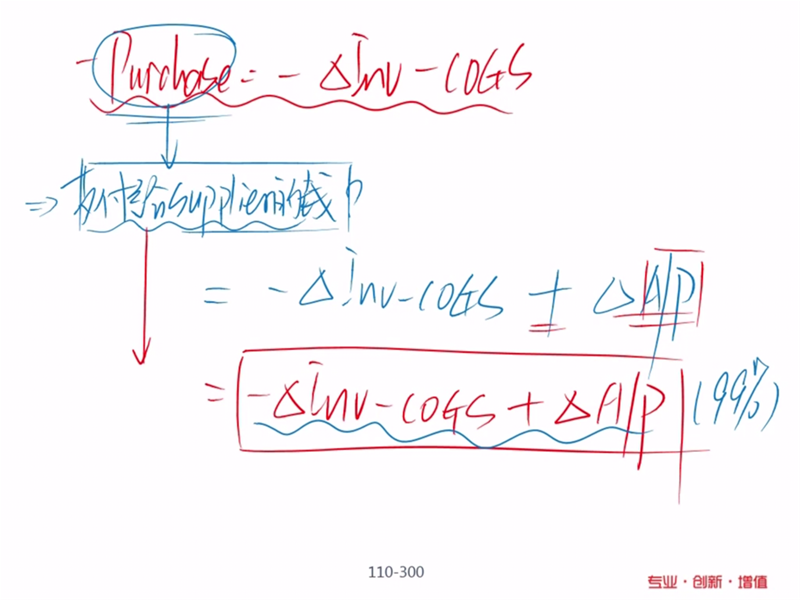 -Purchase = - ΔInv - COGS
⇒ 支付给supplier的钱
= - ΔInv - COGS + ΔA/P
= - ΔInv - COGS + ΔA/P (99%)
110-300
专业·创新·增值